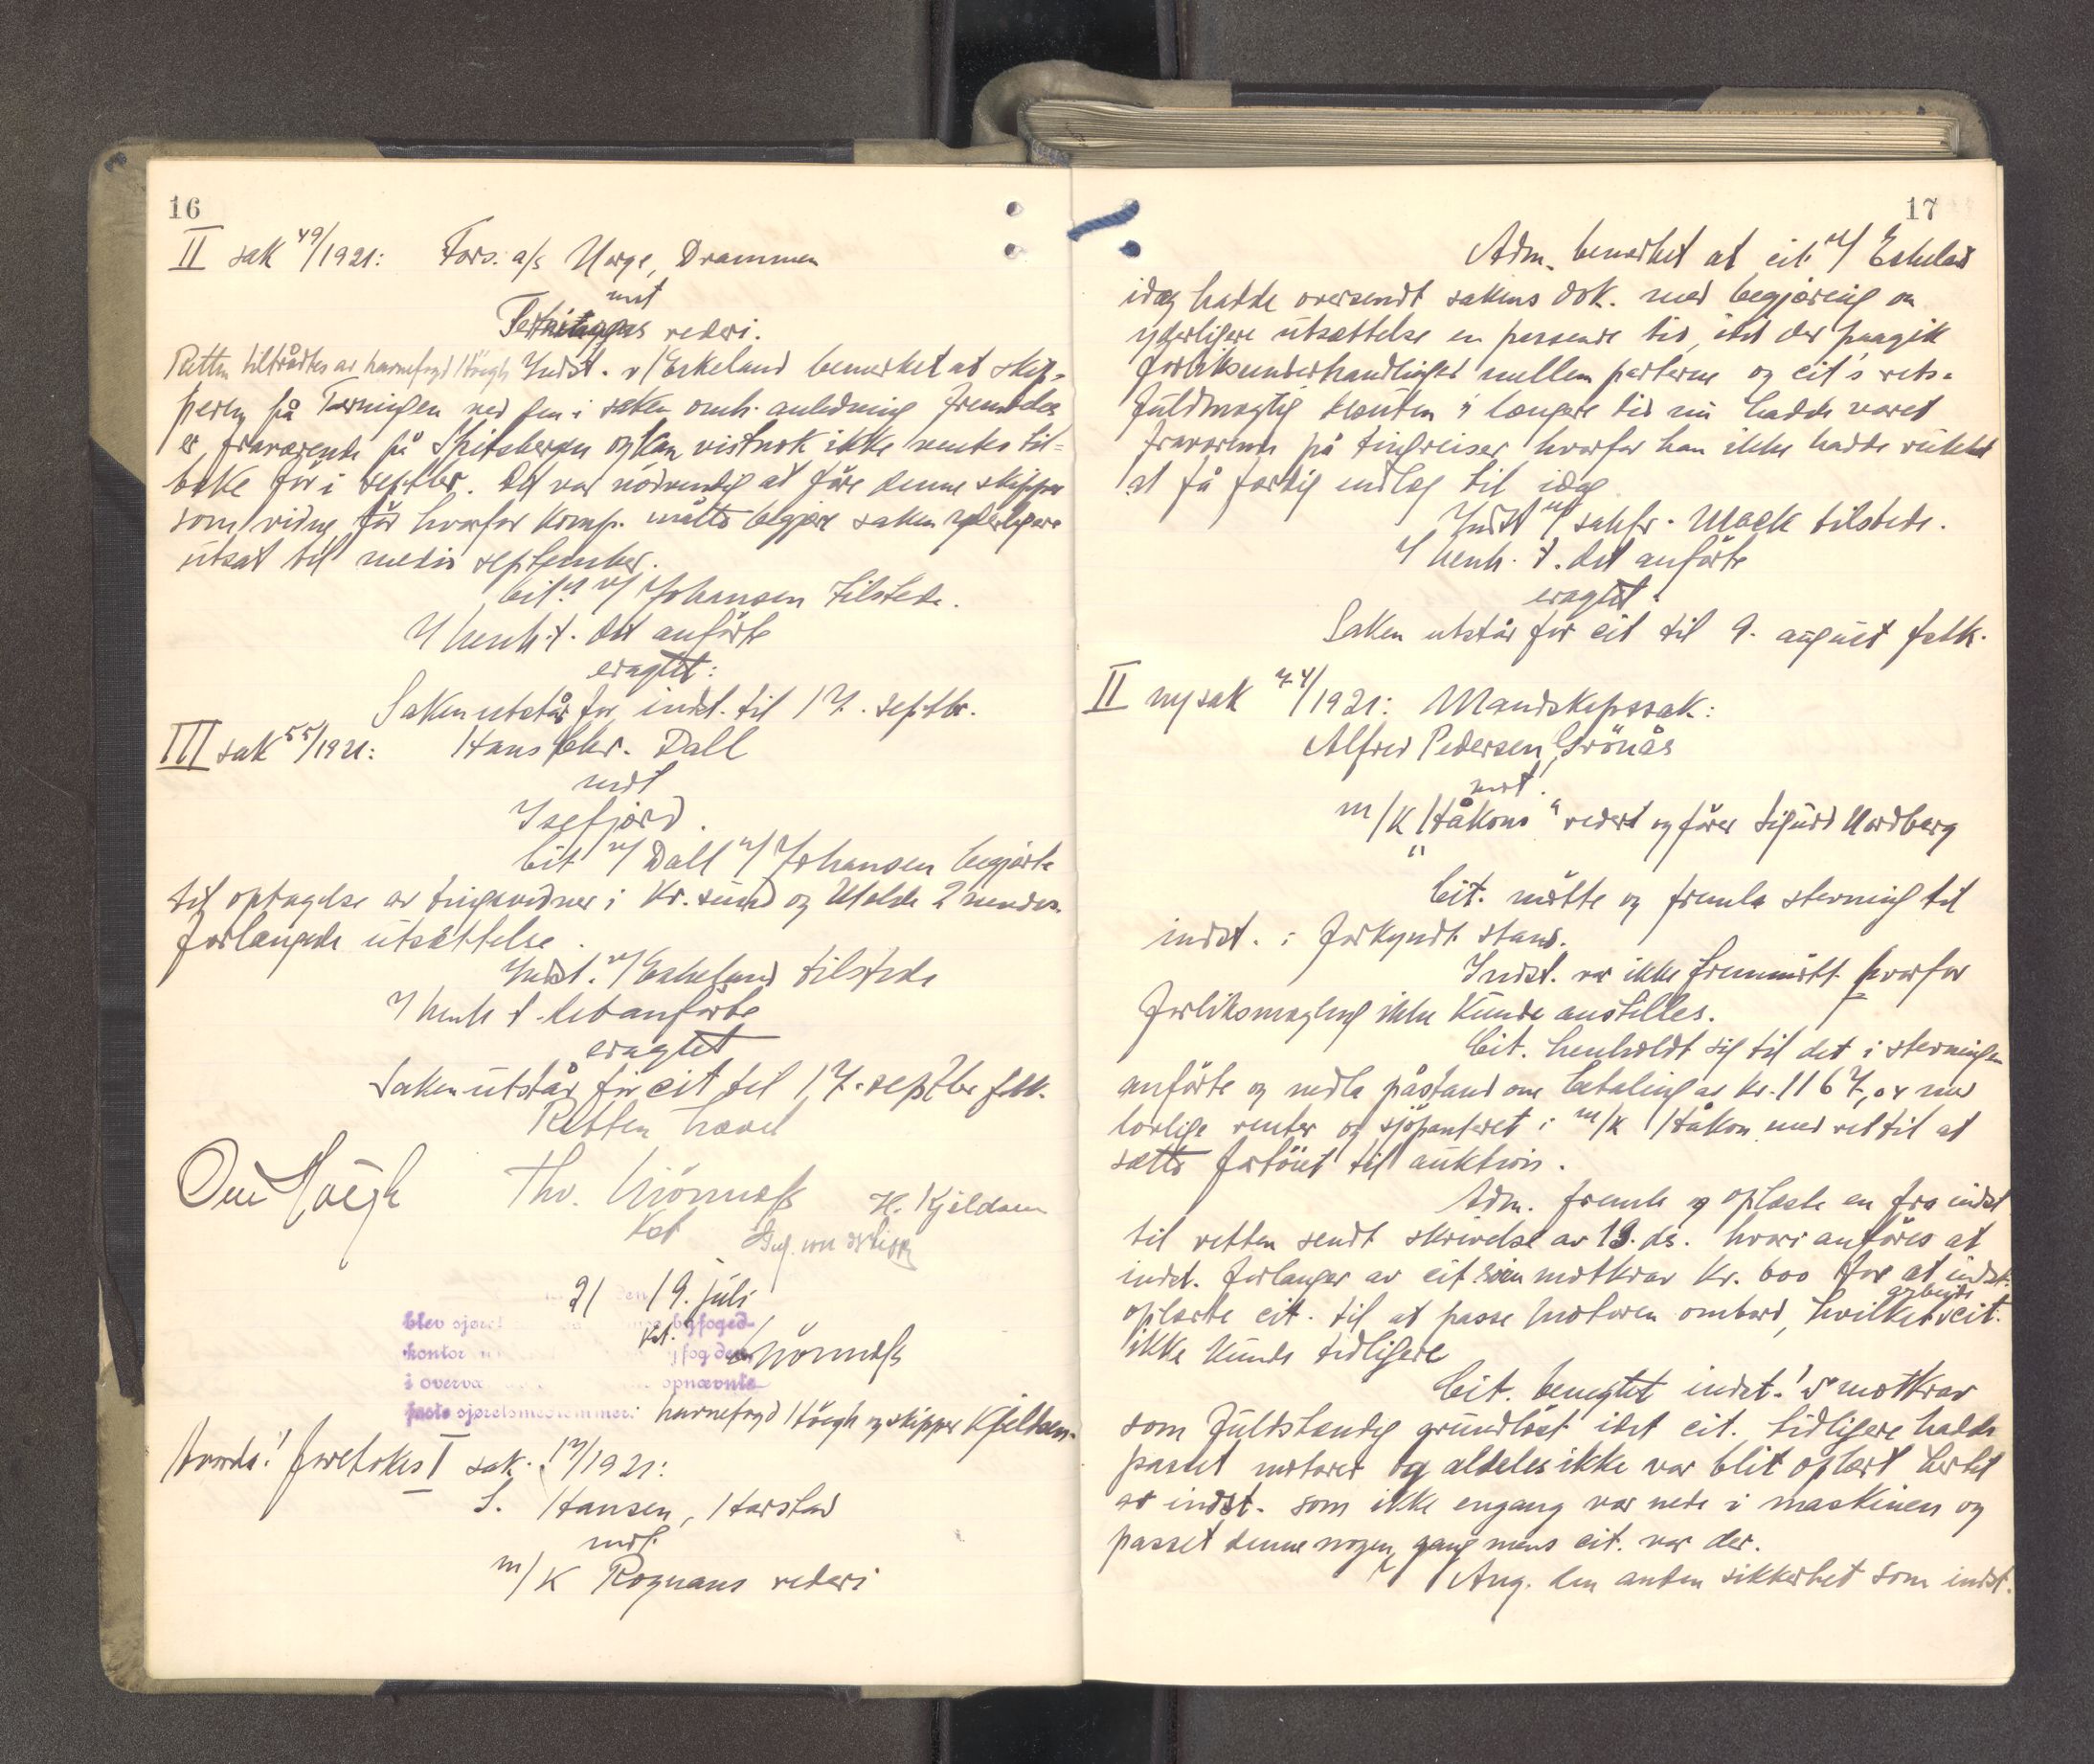 16
II sak 49/1921: Fors. a/s Norge, Drammen
mot
rederi.
Retten tiltrådtes av havnefogd Höegh Indst. v/Eskeland bemerket at skip-
peren på Terningen ved den i saken omh. anledning fremdeles
er fraværende på Spitsbergen og kan vistnok ikke ventes til-
bake før i septbr. Det var nödvendig at före denne skipper
som vidne för hvorfor komp. måtte begjære saken yderligere
utsat til medio september.
Cit. v/ Johansen tilstede.
I henh. t. det anförte
eragtet:
Saken utstår for indst. til 17. septbr.
III sak 55/1921: Hans Chr. Dall
mot
Isefjord.
Cit v/ Dall v/ Johansen begjærte
til optagelse av tingsvidner i Kr.sund og Molde 2 mndrs.
forlængede utsættelse.
Indst. v/ Eskeland tilstede
I henh t. det anförte
eragtet
Saken utstår for cit til 17. septbr fstk.
Retten hævet
Ove Höegh Thv. Grönness H. Kjeldsen
Kst
21 den 19. juli
blev sjøret byfoged-
kst. Grönness
kontor
i overvæ opnævnte
faste sjøretsmedlemmer: havnefogd Höegh og skipper Kjeldsen.
Hvorda! Foretokes I sak 17/1921:
S. Hansen, Harstad
mot
m/k Rognans rederi
17
Adm. bemerket at cit. v/ Eskeland
idag hadde oversendt sakens dok. med begjæring om
yderligere utsættelse en passende tid, idet der paagik
forliksunderhandlinger mellem parterne og cit's rets-
fuldmægtig i længere tid nu hadde været
fraværende på tingreiser hvorfor han ikke hadde rukket
at få færdig indlæg til idag
Indst v/ sakfr. Mack tilstede.
I henh. t. det anförte
eragtet:
Saken utstår for cit til 9. august fstk.
II ny sak 74/1921: Mandskapssak:
Alfred Pedersen, Grönås
mot
m/k "Håkons" rederi og förer Sigurd Nordberg
Cit. mötte og fremla stevning til
indst. i forkyndt stand.
Indst. var ikke fremmött hvorfor
forliksmægling ikke kunde anstilles.
Cit. henholdt sig til det i stevningen
anförte og nedla påstand om betaling av kr. 1167,04 med
lovlige renter og sjöpanteret i m/k Håkon med ret til at
sætte fartöiet til auktion.
Adm. fremla og oplæste en fra indst
til retten sendt skrivelse av 13. ds. hvori anföres at
indst. forlanger av cit som motkrav kr. 600 for at indst.
oplærte cit. til at passe motoren ombord, hvilket arbeide cit.
ikke kunde tidligere
Cit. benegtet indst.'s motkrav
som fuldstændig grundlöst idet cit. tidligere hadde
passet motorer og aldeles ikke var blit oplært hertil
av indst. som ikke engang var nede i maskinen og
passet denne nogen gang mens cit. var der.
Ang. den anden sikkerhet som indst.